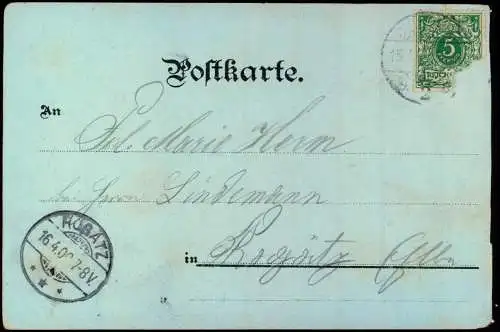 Postkarte.
5
An
Frl. Marie Horm
bei Herrn Lindemann
in Rogätz Elbe
ROGÄTZ
16.4.00 7-8V.